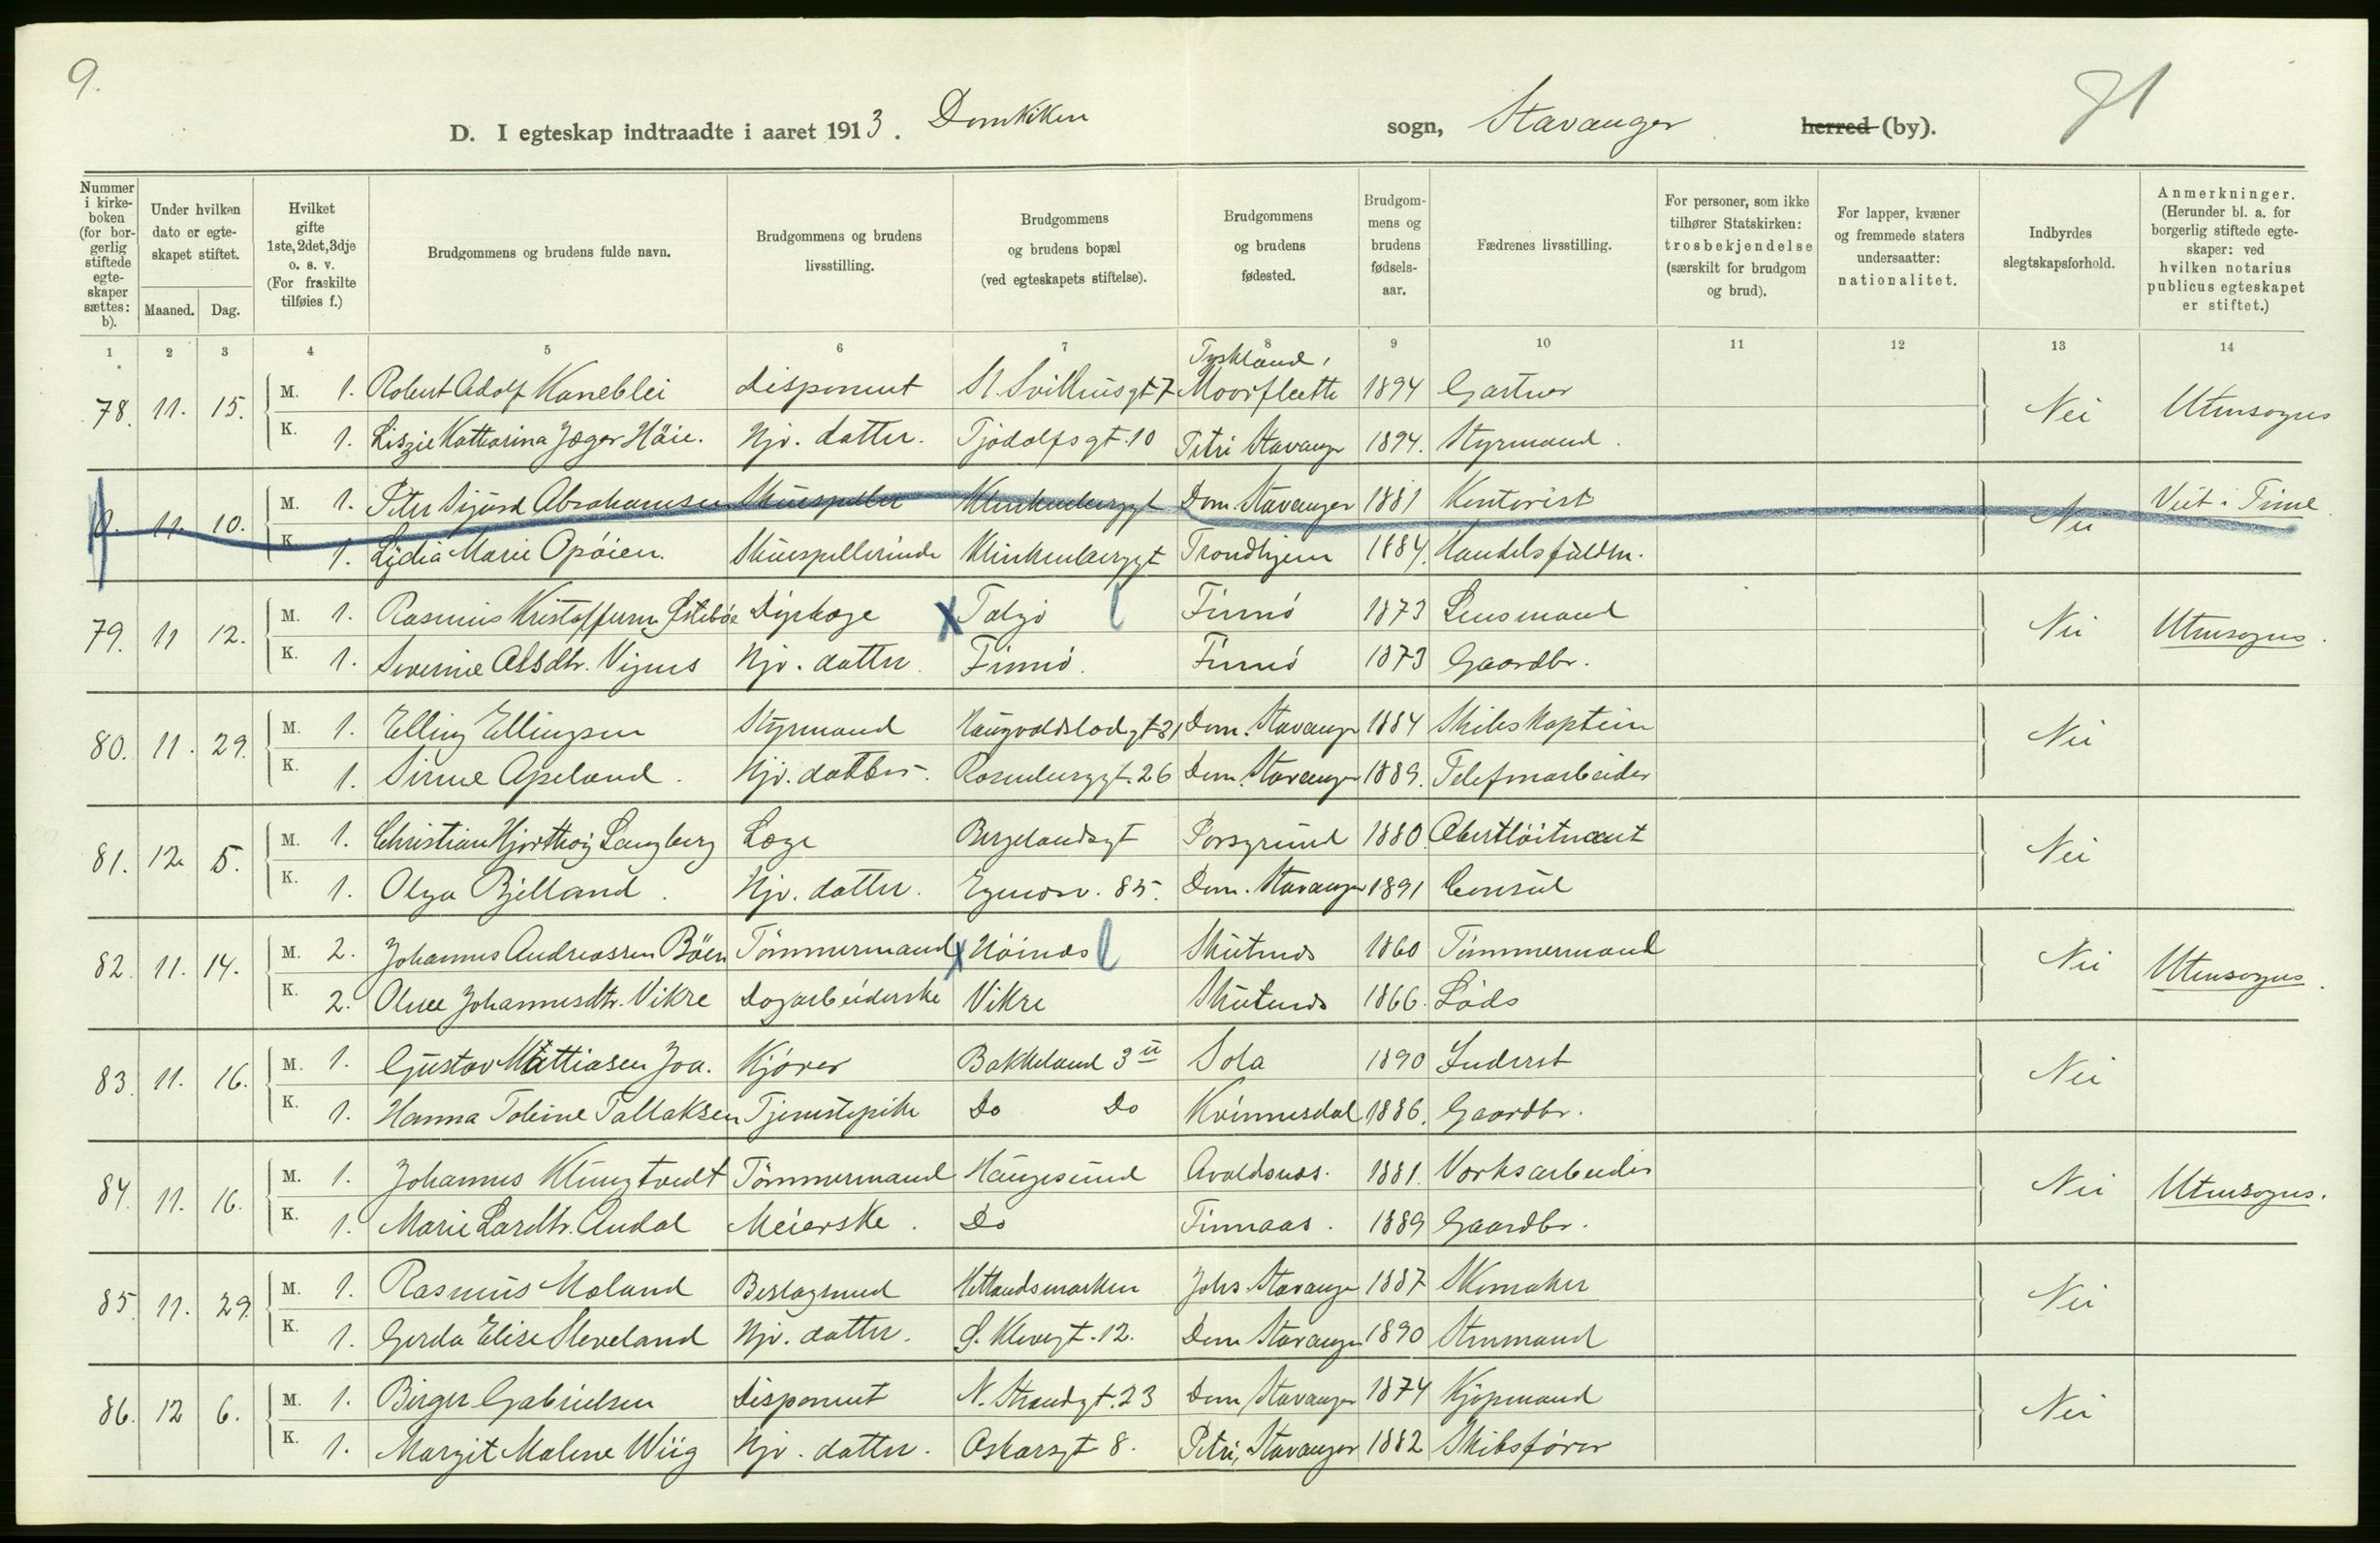 9.
D. I egteskap indtraadte i aaret 1913. Domkiken sogn, Stavanger herred (by).
Nummer i kirke-boken (for bor-gerlig stiftede egte-skaper sættes: b).
Under hvilken dato er egte-skapet stiftet.
Maaned. Dag.
Hvilket gifte 1ste, 2det, 3dje o. s. v. (For fraskilte tilføies f.)
Brudgommens og brudens fulde navn.
Brudgommens og brudens livsstilling.
Brudgommens og brudens bopæl (ved egteskapets stiftelse).
Brudgommens og brudens fødested.
Brudgom-mens og brudens fødsels-aar.
Fædrenes livsstilling.
For personer, som ikke tilhører Statskirken: trosbekjendelse (særskilt for brudgom og brud).
For lapper, kvæner og fremmede staters undersaatter: nationalitet.
Indbyrdes slegtskapsforhold.
Anmerkninger. (Herunder bl. a. for borgerlig stiftede egte-skaper: ved hvilken notarius publicus egteskapet er stiftet.)
1 2 3 4 5 6 7 8 9 10 11 12 13 14
Tyskland,
78. 11. 15. M. 1. Robert Adolf Kaneblei Disponent St. Svithunsgt 7 Moorfleette 1894 Gartner Nei Utensogns
K. 1. Liszie Kattarina Jæger Häie. Hjv. datter. Tjodolfsgt. 10 Petri Stavanger 1894. Styrmand.
11. 10. M. 1. Peter Sigurd Abrahamsen Skuespiller Klinkenberggt Dom. Stavanger 1881 Kontorist Nei Viet i Time
K. 1. Lydia Marie Opøien. Skuespillerinde Klinkenberggt Trondhjem 1884. Handelsfuldm.
79. 11 12. M. 1. Rasmus Kristoffersen Dyrlæge X Talgø Finnø 1873 Lensmand Nei Utensogns.
K. 1. Severine Alsdtr. Vignes Hjv. datter. Finnø. Finnø 1873 Gaardbr.
80. 11. 29. M. 1. Elling Ellingsen Styrmand Haugvaldstadgt 31 Dom. Stavanger 1884 Skibskaptein Nei
K. 1. Sinne Apeland. Hjv. datter. Rosenberggt. 26 Dom. Stavanger 1889. Telefonarbeider
81. 12. 5. M. 1. Christian Hjorthøj Langberg Læge Bergelandsgt Porsgrund 1880 Oberstløitnant Nei
K. 1. Olga Bjelland. Hjv. datter. Egenesv. 85. Dom. Stavanger 1891 Consul
82. 11. 14. M. 2. Johannes Andreassen Bøen Tømmermand X Höinæs Skutnæs 1860 Tømmermand Nei Utensogns.
K. 2. Oline Johannesdtr. Vikre Dagarbeiderske Vikre Skutnæs 1866. Lods
83. 11. 16. M. 1. Gustav Mattiasen Joa. Kjører Bakkeland 3 II Sola 1890 Inderst Nei
K. 1. Hanna Toline Tallaksen Tjenestepike Do Do Kvinnesdal 1886. Gaardbr.
84. 11. 16. M. 1. Johannes Klungtvedt Tømmermand Haugesund Avaldsnæs. 1881. Verksarbeider Nei Utensogns.
K. 1. Marie Larsdtr. Andal Meierske. Do Finnaas. 1889 Gaardbr.
85. 11. 29. M. 1. Rasmus Moland Beslagsmed Hetlandsmarken Johs. Stavanger 1887 Skomaker Nei
K. 1. Gerda Elise Sleveland Hjv. datter. S. Klevegt. 12. Dom Stavanger 1890 Sturmand
86. 12 6. M. 1. Birger Gabrielsen Disponent N. Strandgt. 23 Dom, Stavanger 1874 Kjøpmand Nei
K. 1. Margit Malene Wiig Hjv. datter. Oskarsgt 8. Petri, Stavanger 1882 Skibsfører